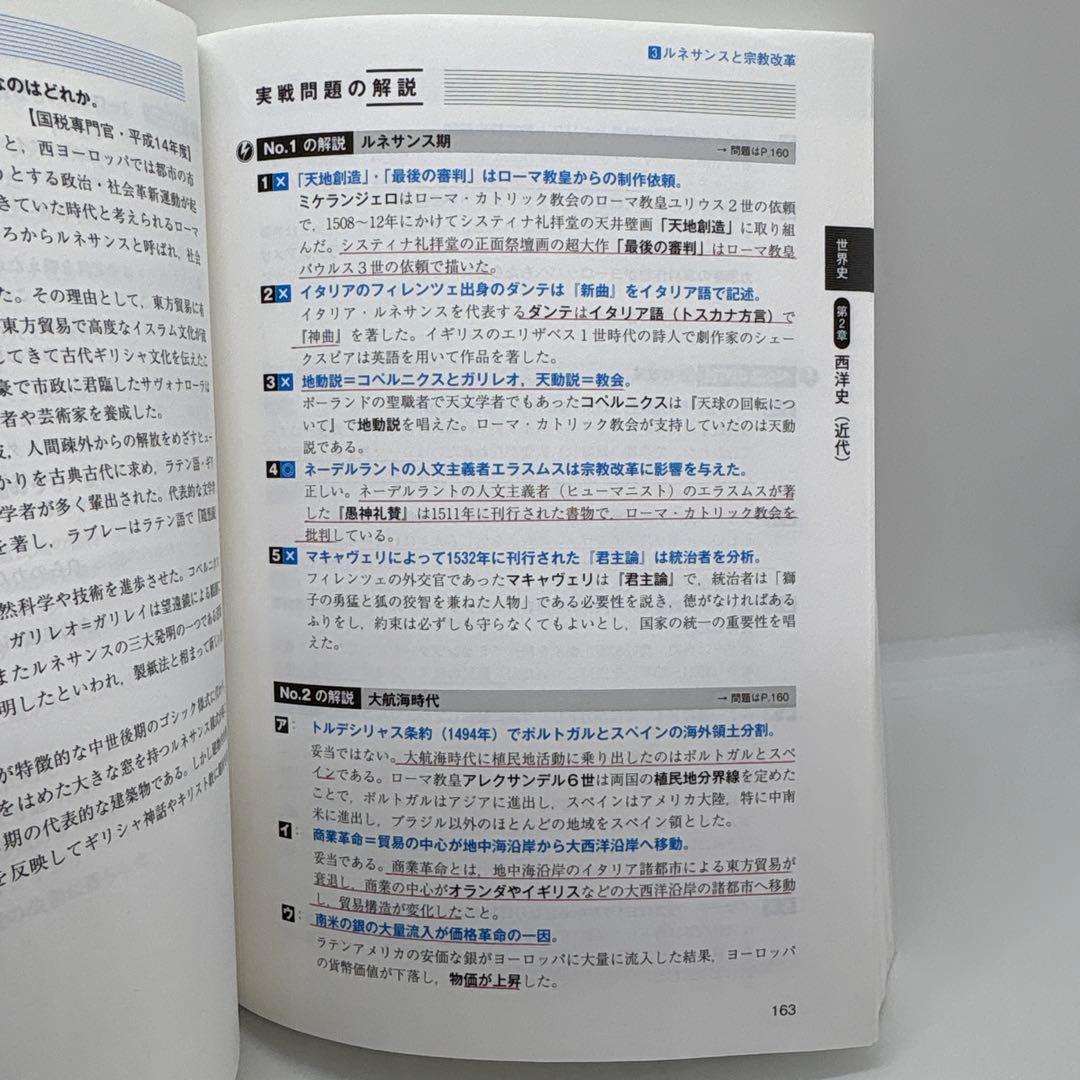 なのはどれか。
【国税専門官・平成14年度】
と，西ヨーロッパでは都市の市
とする政治・社会革新運動が起
きていた時代と考えられるローマ
ろからルネサンスと呼ばれ，社会
た。その理由として，東方貿易に有
東方貿易で高度なイスラム文化が
してきて古代ギリシャ文化を伝えたこ
豪で市政に君臨したサヴォナローラは
者や芸術家を養成した。
，人間疎外からの解放をめざすヒュー
かりを古典古代に求め，ラテン語・ギリ
学者が多く輩出された。代表的な文学
を著し，ラブレーはラテン語で『随想録
然科学や技術を進歩させた。コペルニクス
ガリレオ＝ガリレイは望遠鏡による
またルネサンスの三大発明の一つである
明したといわれ，製紙法と相まって新しい
が特徴的な中世後期のゴシック様式に代わ
をはめた大きな窓を持つルネサンス様式が
期の代表的な建築物である。しかし
を反映してギリシャ神話やキリスト教に
3 ルネサンスと宗教改革
実戦問題の解説
No.1 の解説 ルネサンス期 → 問題はP.160
1 × 「天地創造」・「最後の審判」はローマ教皇からの制作依頼。
ミケランジェロはローマ・カトリック教会のローマ教皇ユリウス２世の依頼
で，1508～12年にかけてシスティナ礼拝堂の天井壁画「天地創造」に取り組
んだ。システィナ礼拝堂の正面祭壇画の超大作「最後の審判」はローマ教皇
パウルス３世の依頼で描いた。
2 × イタリアのフィレンツェ出身のダンテは『新曲』をイタリア語で記述。
イタリア・ルネサンスを代表するダンテはイタリア語（トスカナ方言）で
『神曲』を著した。イギリスのエリザベス１世時代の詩人で劇作家のシェー
クスピアは英語を用いて作品を著した。
3 × 地動説＝コペルニクスとガリレオ，天動説＝教会。
ポーランドの聖職者で天文学者でもあったコペルニクスは『天球の回転につ
いて』で地動説を唱えた。ローマ・カトリック教会が支持していたのは天動
説である。
4 ◎ ネーデルラントの人文主義者エラスムスは宗教改革に影響を与えた。
正しい。ネーデルラントの人文主義者（ヒューマニスト）のエラスムスが著
した『愚神礼賛』は1511年に刊行された書物で，ローマ・カトリック教会を
批判している。
5 × マキャヴェリによって1532年に刊行された『君主論』は統治者を分析。
フィレンツェの外交官であったマキャヴェリは『君主論』で，統治者は「獅
子の勇猛と狐の狡智を兼ねた人物」である必要性を説き，徳がなければある
ふりをし，約束は必ずしも守らなくてもよいとし，国家の統一の重要性を唱
えた。
No.2 の解説 大航海時代 → 問題はP.160
ア： トルデシリャス条約（1494年）でポルトガルとスペインの海外領土分割。
妥当ではない。大航海時代に植民地活動に乗り出したのはポルトガルとスペ
インである。ローマ教皇アレクサンデル６世は両国の植民地分界線を定めた
ことで，ポルトガルはアジアに進出し，スペインはアメリカ大陸，特に中南
米に進出し，ブラジル以外のほとんどの地域をスペイン領とした。
イ： 商業革命＝貿易の中心が地中海沿岸から大西洋沿岸へ移動。
妥当である。商業革命とは，地中海沿岸のイタリア諸都市による東方貿易が
衰退し，商業の中心がオランダやイギリスなどの大西洋沿岸の諸都市へ移動
し，貿易構造が変化したこと。
ウ： 南米の銀の大量流入が価格革命の一因。
ラテンアメリカの安価な銀がヨーロッパに大量に流入した結果，ヨーロッパ
の貨幣価値が下落し，物価が上昇した。
世界史
第2章
西洋史（近代）
163